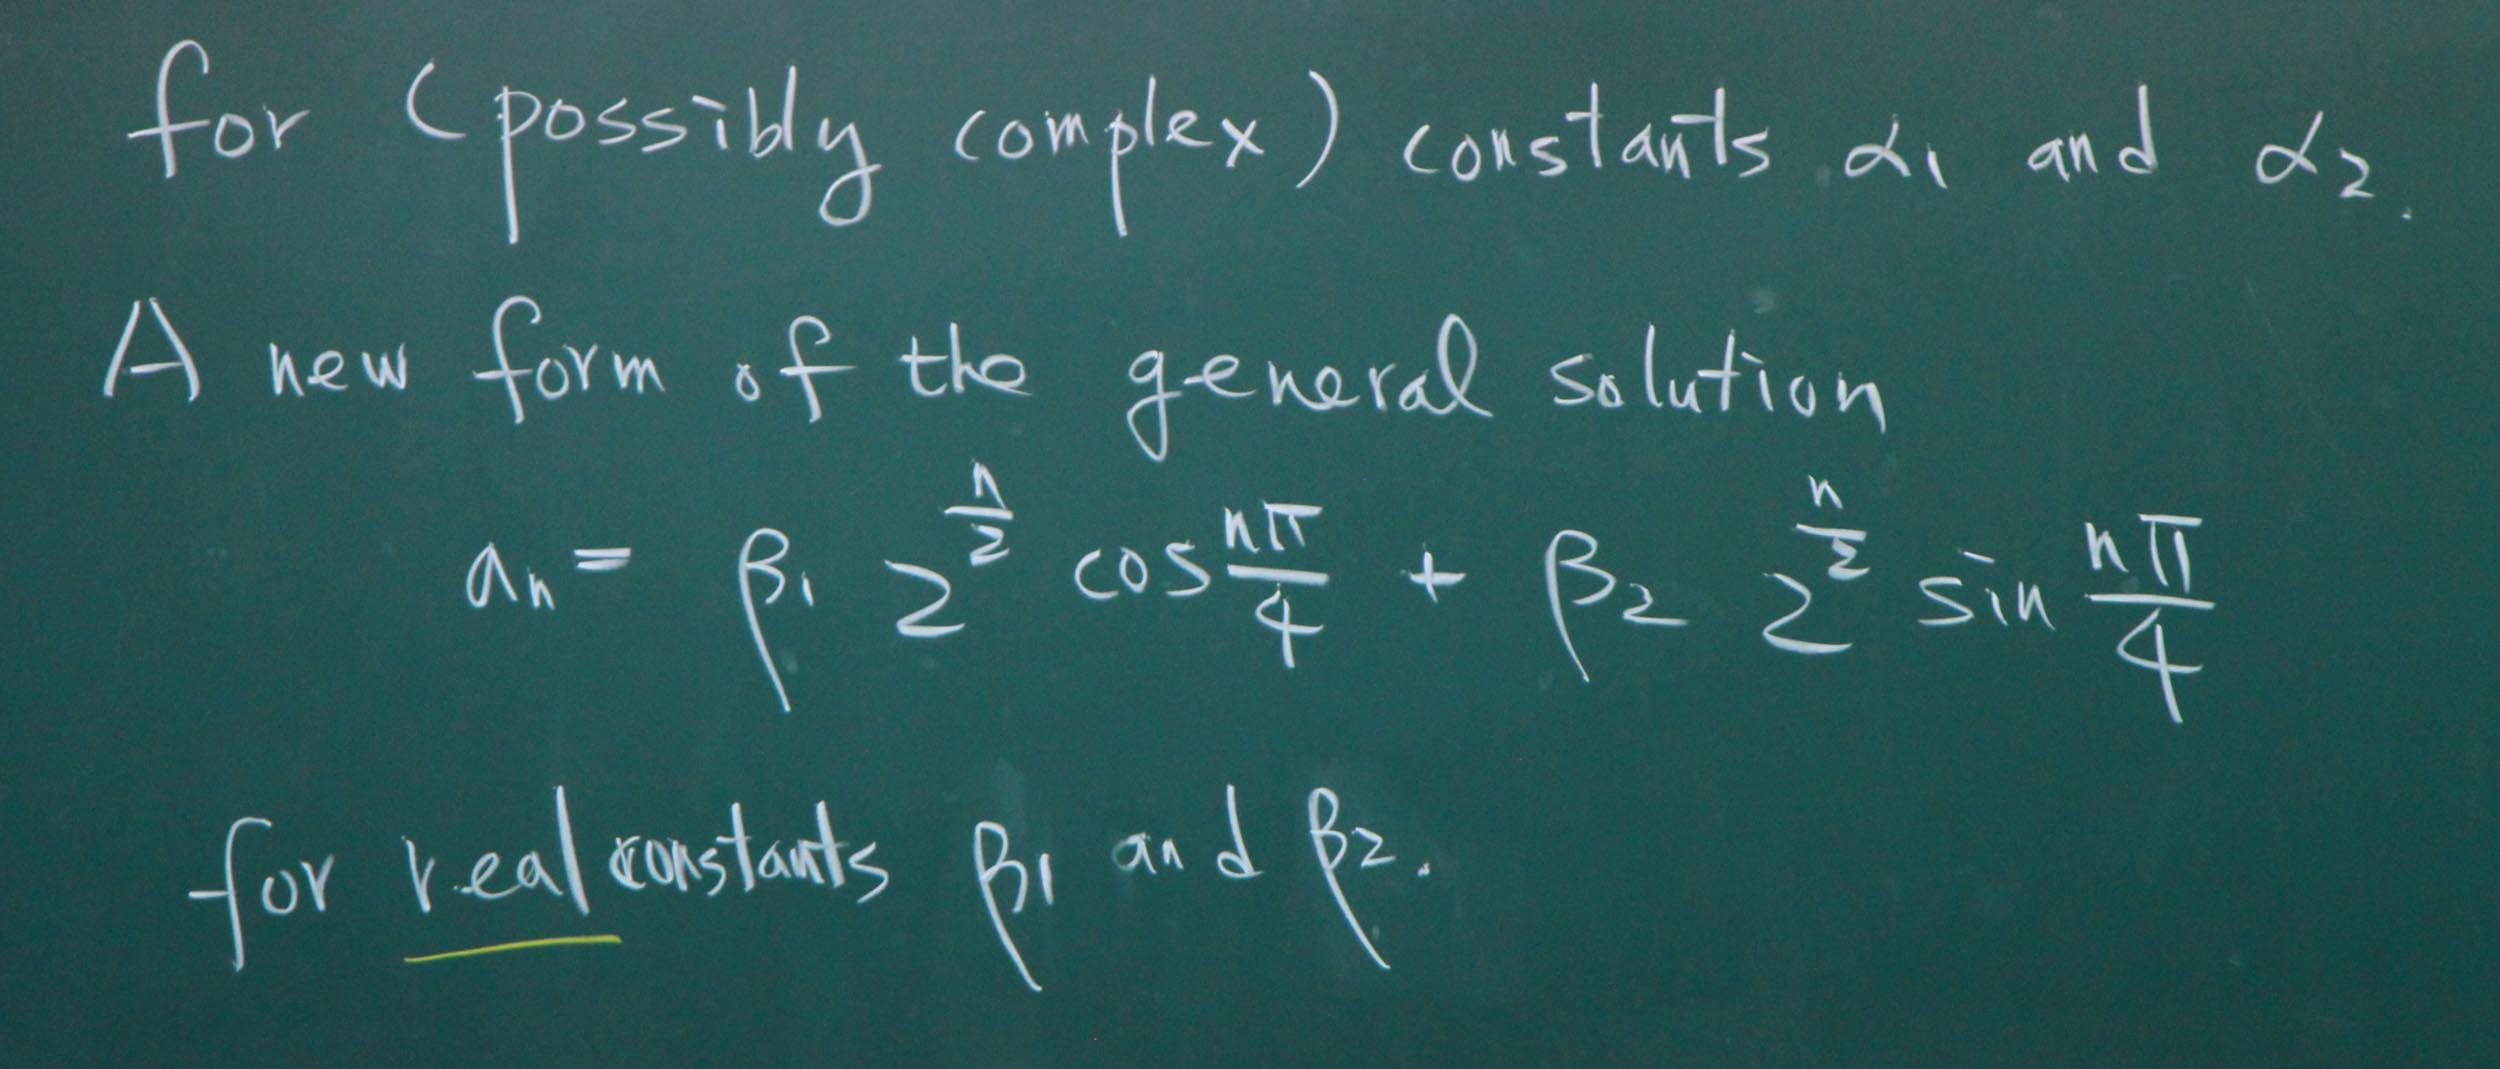 for (possibly complex) constants α₁ and α₂.
A new form of the general solution
aₙ = β₁ 2^(n/2) cos nπ/4 + β₂ 2^(n/2) sin nπ/4
for real constants β₁ and β₂.